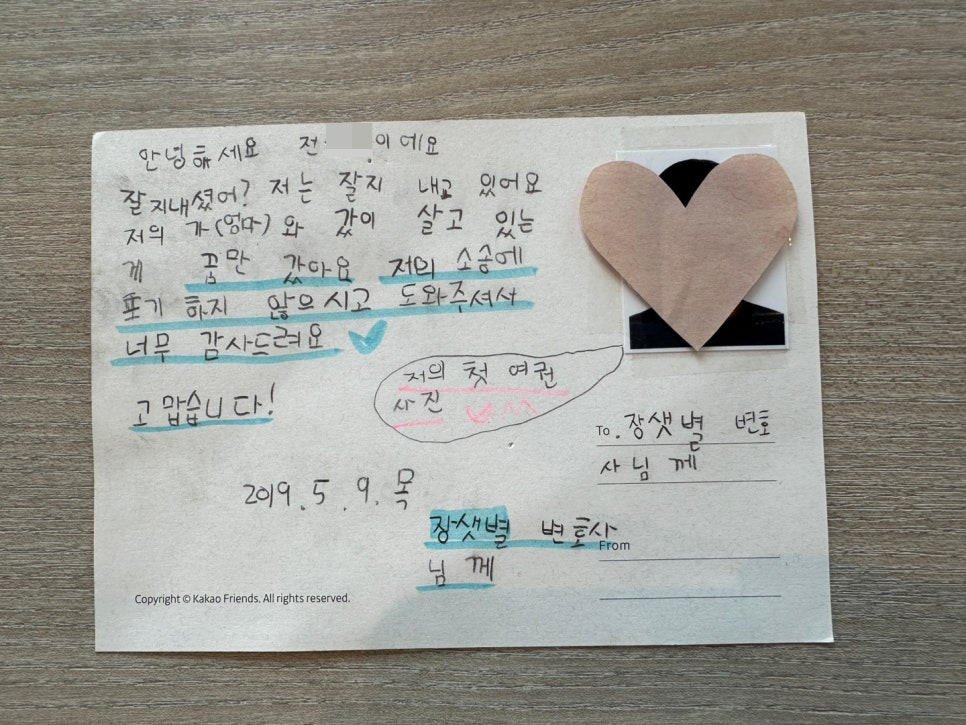 안녕하세요 전 이에요
잘지내셨어? 저는 잘지 내고 있어요
저의 가(엄마)와 값이 살고 있는
게 꿈만 갔아요 저의 소송에
포기 하지 않으시고 도와주셔서
너무 감사드려요
고맙습니다!
저의 첫 여권
사진 ^^
To. 장샛별 변호
사님께
2019. 5. 9. 목
장샛별 변호사
님께
From
Copyright © Kakao Friends. All rights reserved.